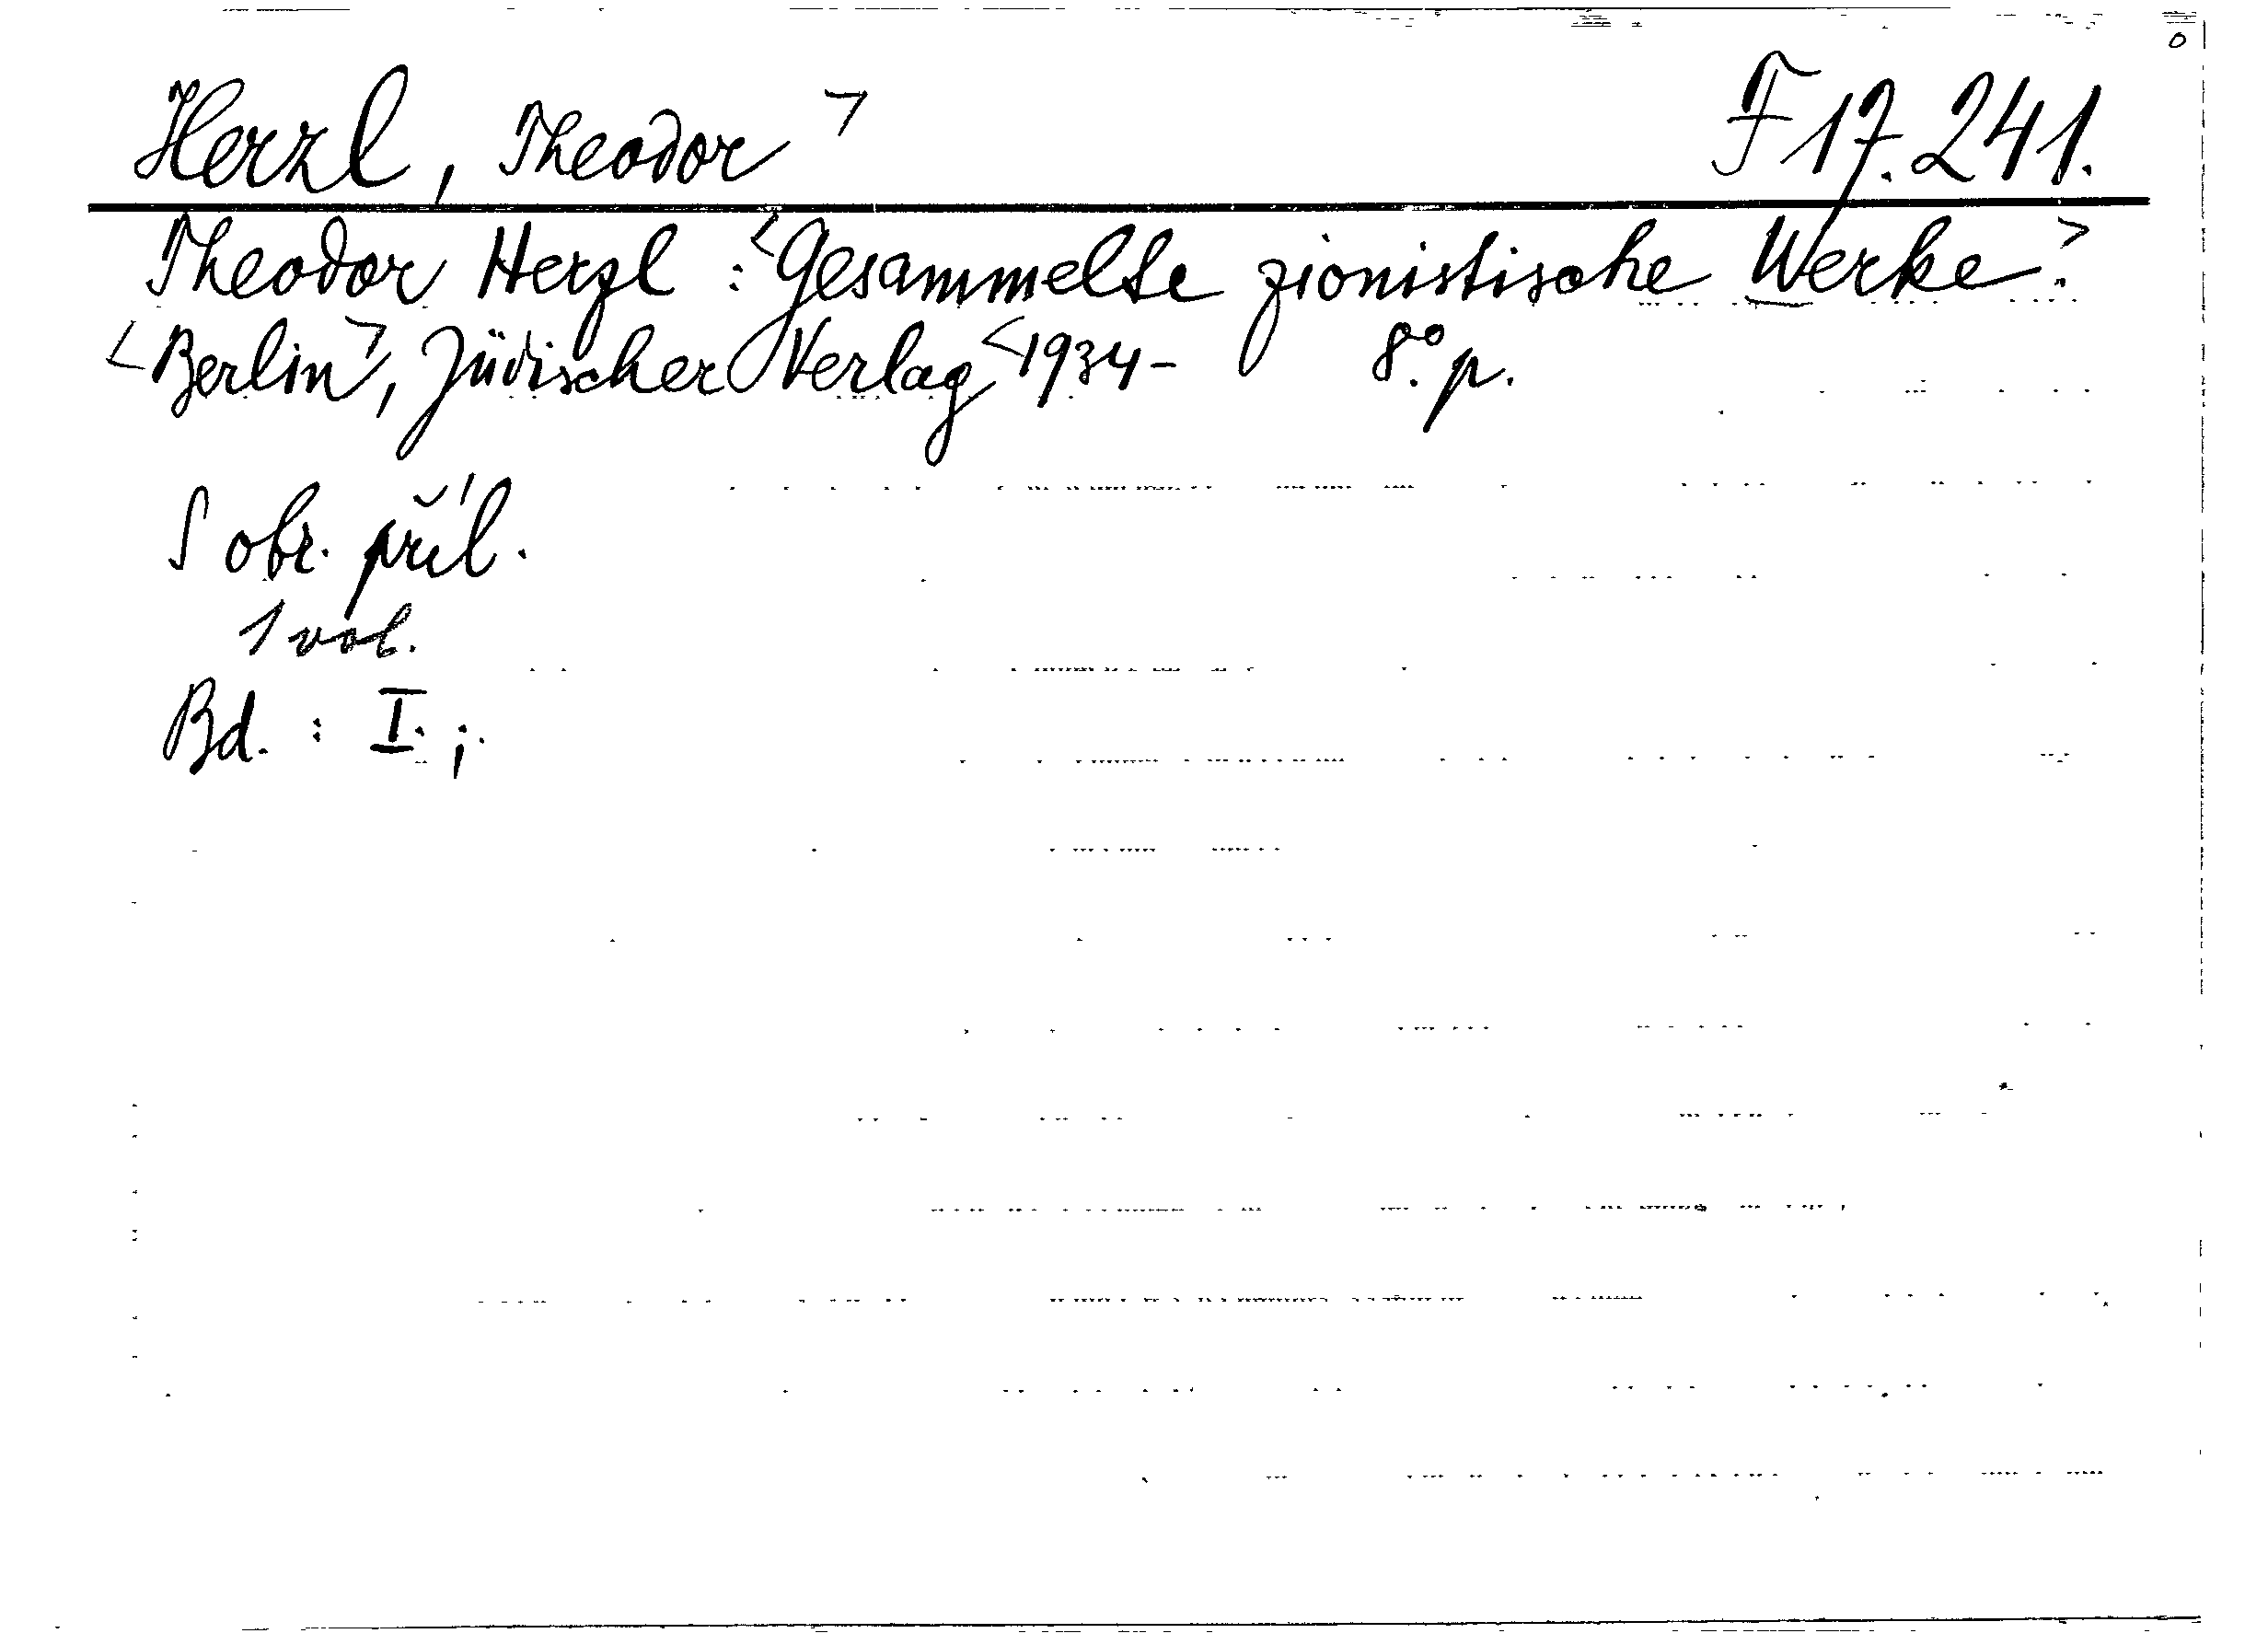 Herzl, Theodor> F 17.241.
Theodor Herzl: <Gesammelte zionistische Werke.>
<Berlin>, Jüdischer Verlag <1934- 8° p.
S obr. příl.
1 vol.
Bd.: I.;